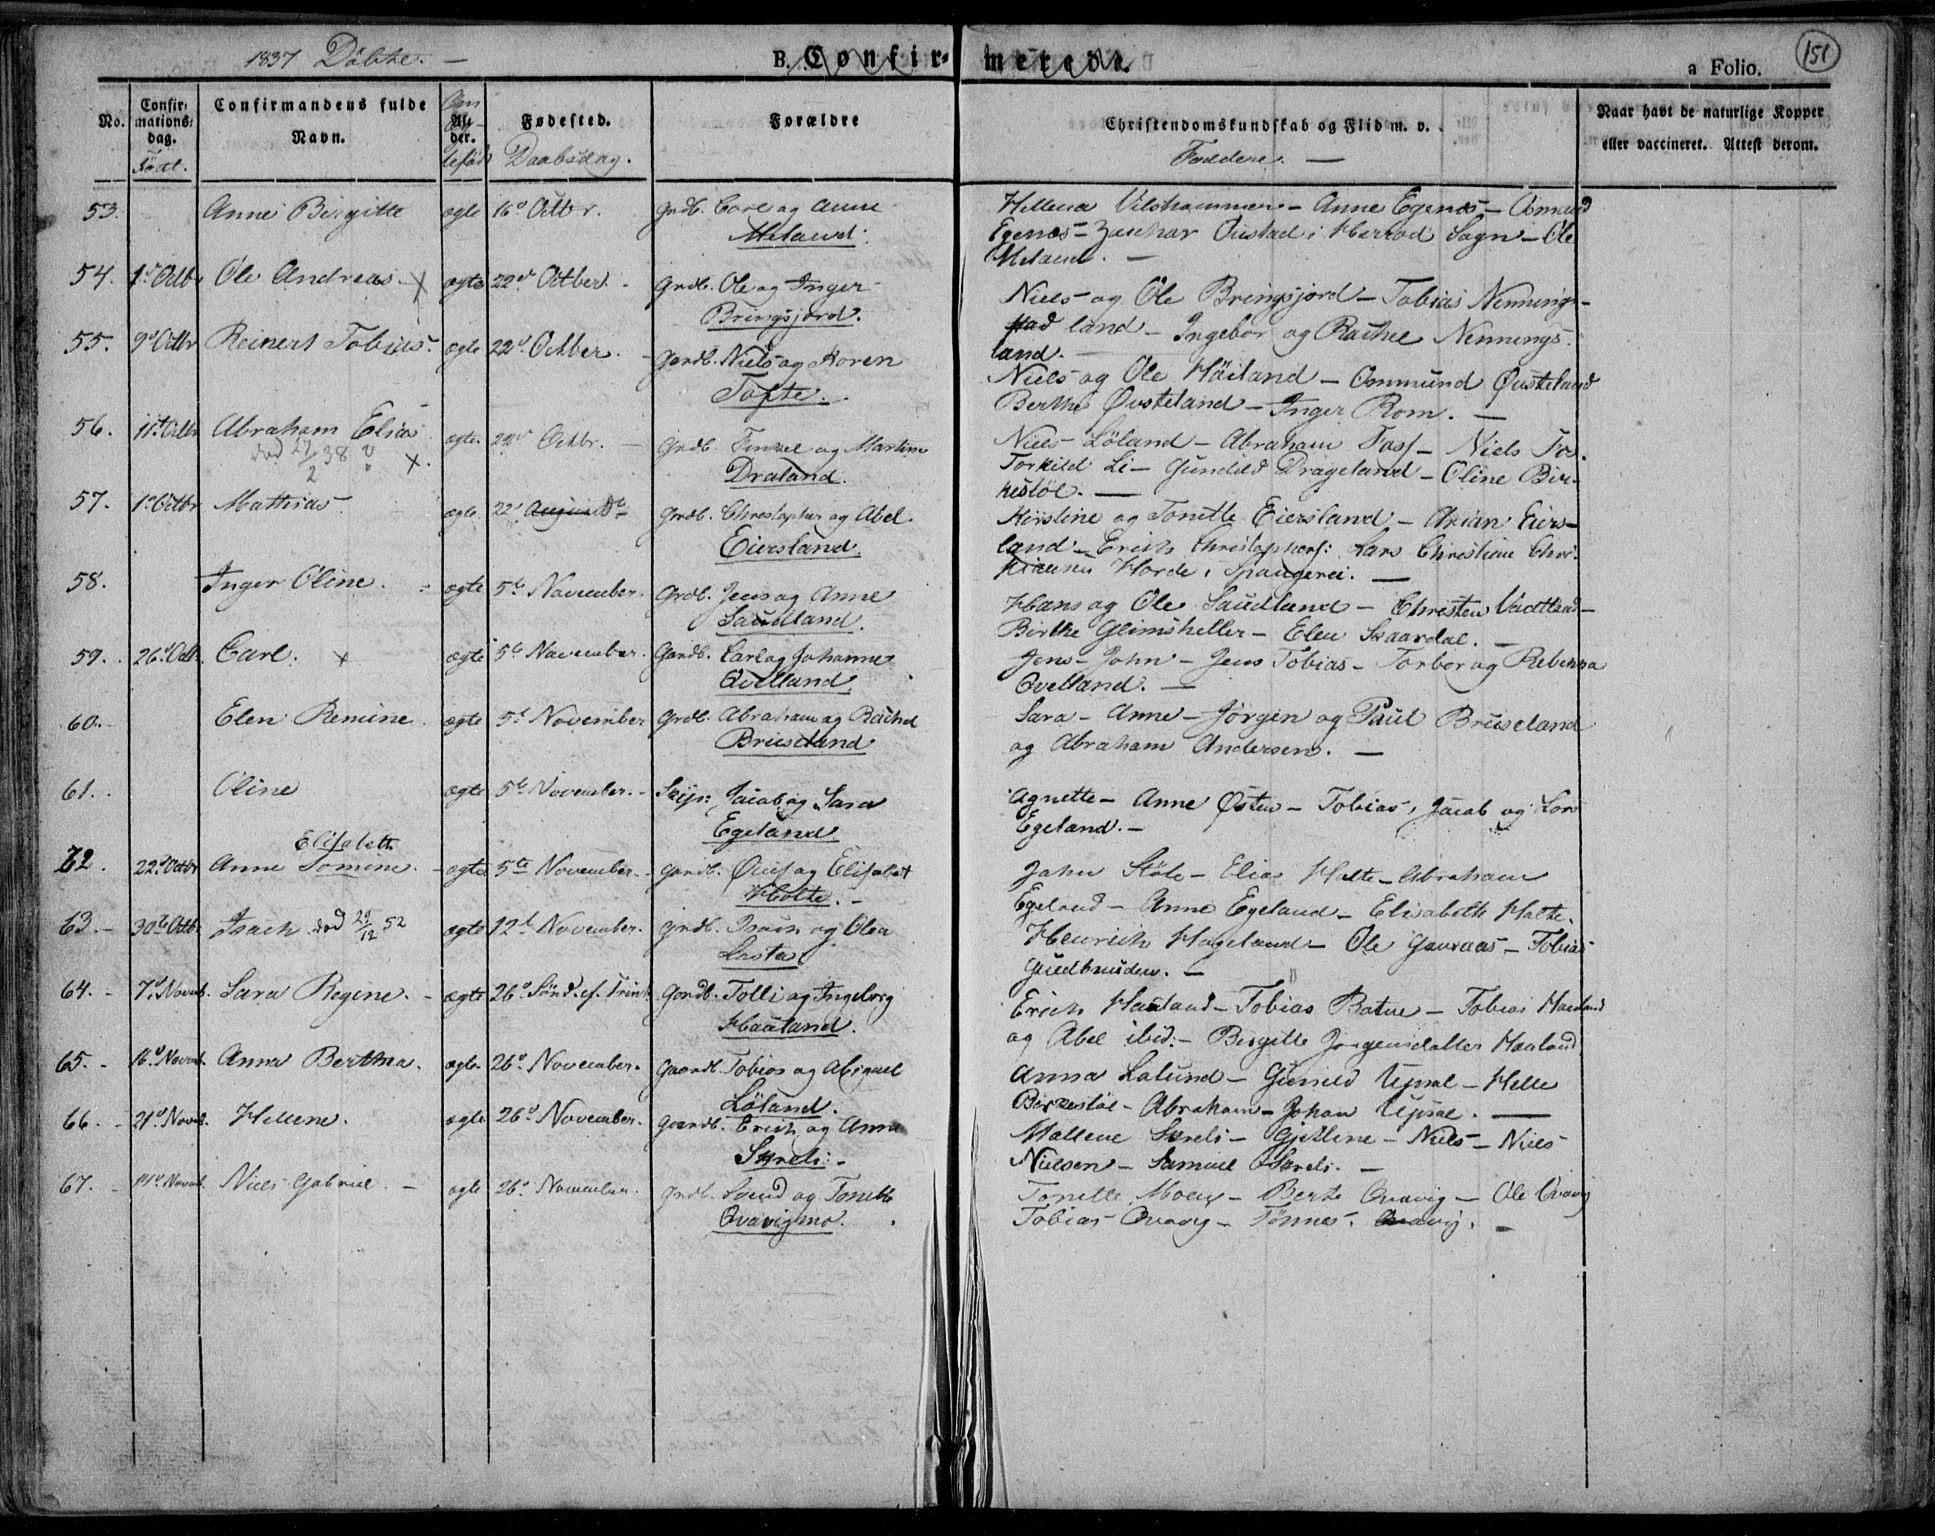 1837 Döbte. —
B. Confir- merede.
a Folio. 151
No.
Confir-
mations-
dag.
Födt.
Confirmandens fulde
Navn.
Al-
der.
Fødested.
Daabsdag.
Forældre
Christendomskundskab og Flid m. v.
Faddere. —
Naar havt de naturlige Kopper
eller vaccineret. Attest derom.
53. Anne Birgitte ægte 16d Octbr. Grdb. Carl og Anne
Meland.
Hellena Vilshammer – Anne Egenæs – Osmund
Egenæs – Zachar Oustad i Herrod Sogn – Ole
Meland. —
54. 1st Octbr Ole Andreas x ægte 22d Octber. Grdb. Ole og Inger
Bringsjord.
Niels og Ole Bringsjord – Tobias Nennings-
land – Ingebor og Rachel Nennings-
land. —
55. 9d Octbr Reinert Tobias. ægte 22d Octber. Gardb. Niels og Koren
Tofte.
Niels og Ole Höiland – Ommund Øvsteland
Berthe Øvsteland – Inger Rom. —
56. 11t Octbr Abraham Elias ægte. 22d Octbr. — Grdb. Tinkel og Martine
död 27/2 38 x.
Draland.
Niels Löland – Abraham Foss – Niels Fos.
Torkild Li – Gunild Drageland – Oline Bir-
kestöl. —
57. 1st Octbr Mathias ægte 22d August Do Grdb. Christopher og Abel
Eiersland.
Kirstine og Tonette Eiersland – Arian Eiers-
land – Erich Christophers: Lars Christian Chri-
stiansen Horde i Spangerei. —
58. Inger Oline. ægte 5te November. Grdb. Jens og Anne
Saudland.
Hans og Ole Saudland – Christen Vadtland –
Birthe Glimsheller – Elen Skaardal. —
59. 26d Octbr. Carl. x ægte 5te November. Gardb. Carl og Johanne
Qvelland.
Jens – John – Jens Tobias – Torbor og Rebekka
Qvelland. —
60. Elen Remine ægte 5t November Grdb. Abraham og Rachel
Bruseland
Sara – Anne – Jörgen og Paul Bruseland
og Abraham Andersen. —
61. Oline ægte 5te November. Jacob og Sara
Egeland
Agnette – Anne Østen – Tobias, Jacob og Lars
Egeland. –
Elisabeth
62. 22d Octbr Anne Tomine. ægte 5te November. Gardb. Øuf og Elisabet
Holte. –
John Stöle – Elias Holte – Abraham
Egeland – Anne Egeland – Elisabeth Holte.
63. 30te Octbr Isach död 29/12 52 ægte 12t November. Grdb. Isach og Olea
Lasta.
Henrich Hageland – Ole – Tobias
Gudbrusden. –
64. 7d Novemb. Sara Regine. ægte 26d Sönd. ef. Trinit. Gardb. Tolli og Ingeborg
Haaland.
Erich Haaland – Tobias Batne – Tobias Haaland
og Abel ibid. – Birgitte Jörgensdatter Haaland
65. 16d Novemb. Anna Berthea. ægte 26d November. Gaardb. Tobias og Abigael
Löland.
Anna Lölund – Gunild Upsal – Helle
Birkestöl – Abraham – Johan Upsal. —
66. 21d Novemb. Hellene. ægte 26d November. Gaardb. Erich og Anna
Syreli. –
Mallene Syreli – Gjetline – Niels – Niels
Nielsen – Samuel Syreli. —
67. 14d Novemb. Niels Gabriel. – ægte 26d November. Grdb. Svend og Tonette
Qvavigmo.
Tonette Moen – Berte Qvavig – Ole Qvavig
Tobias Qvavig – Tönnes Qvavig. –